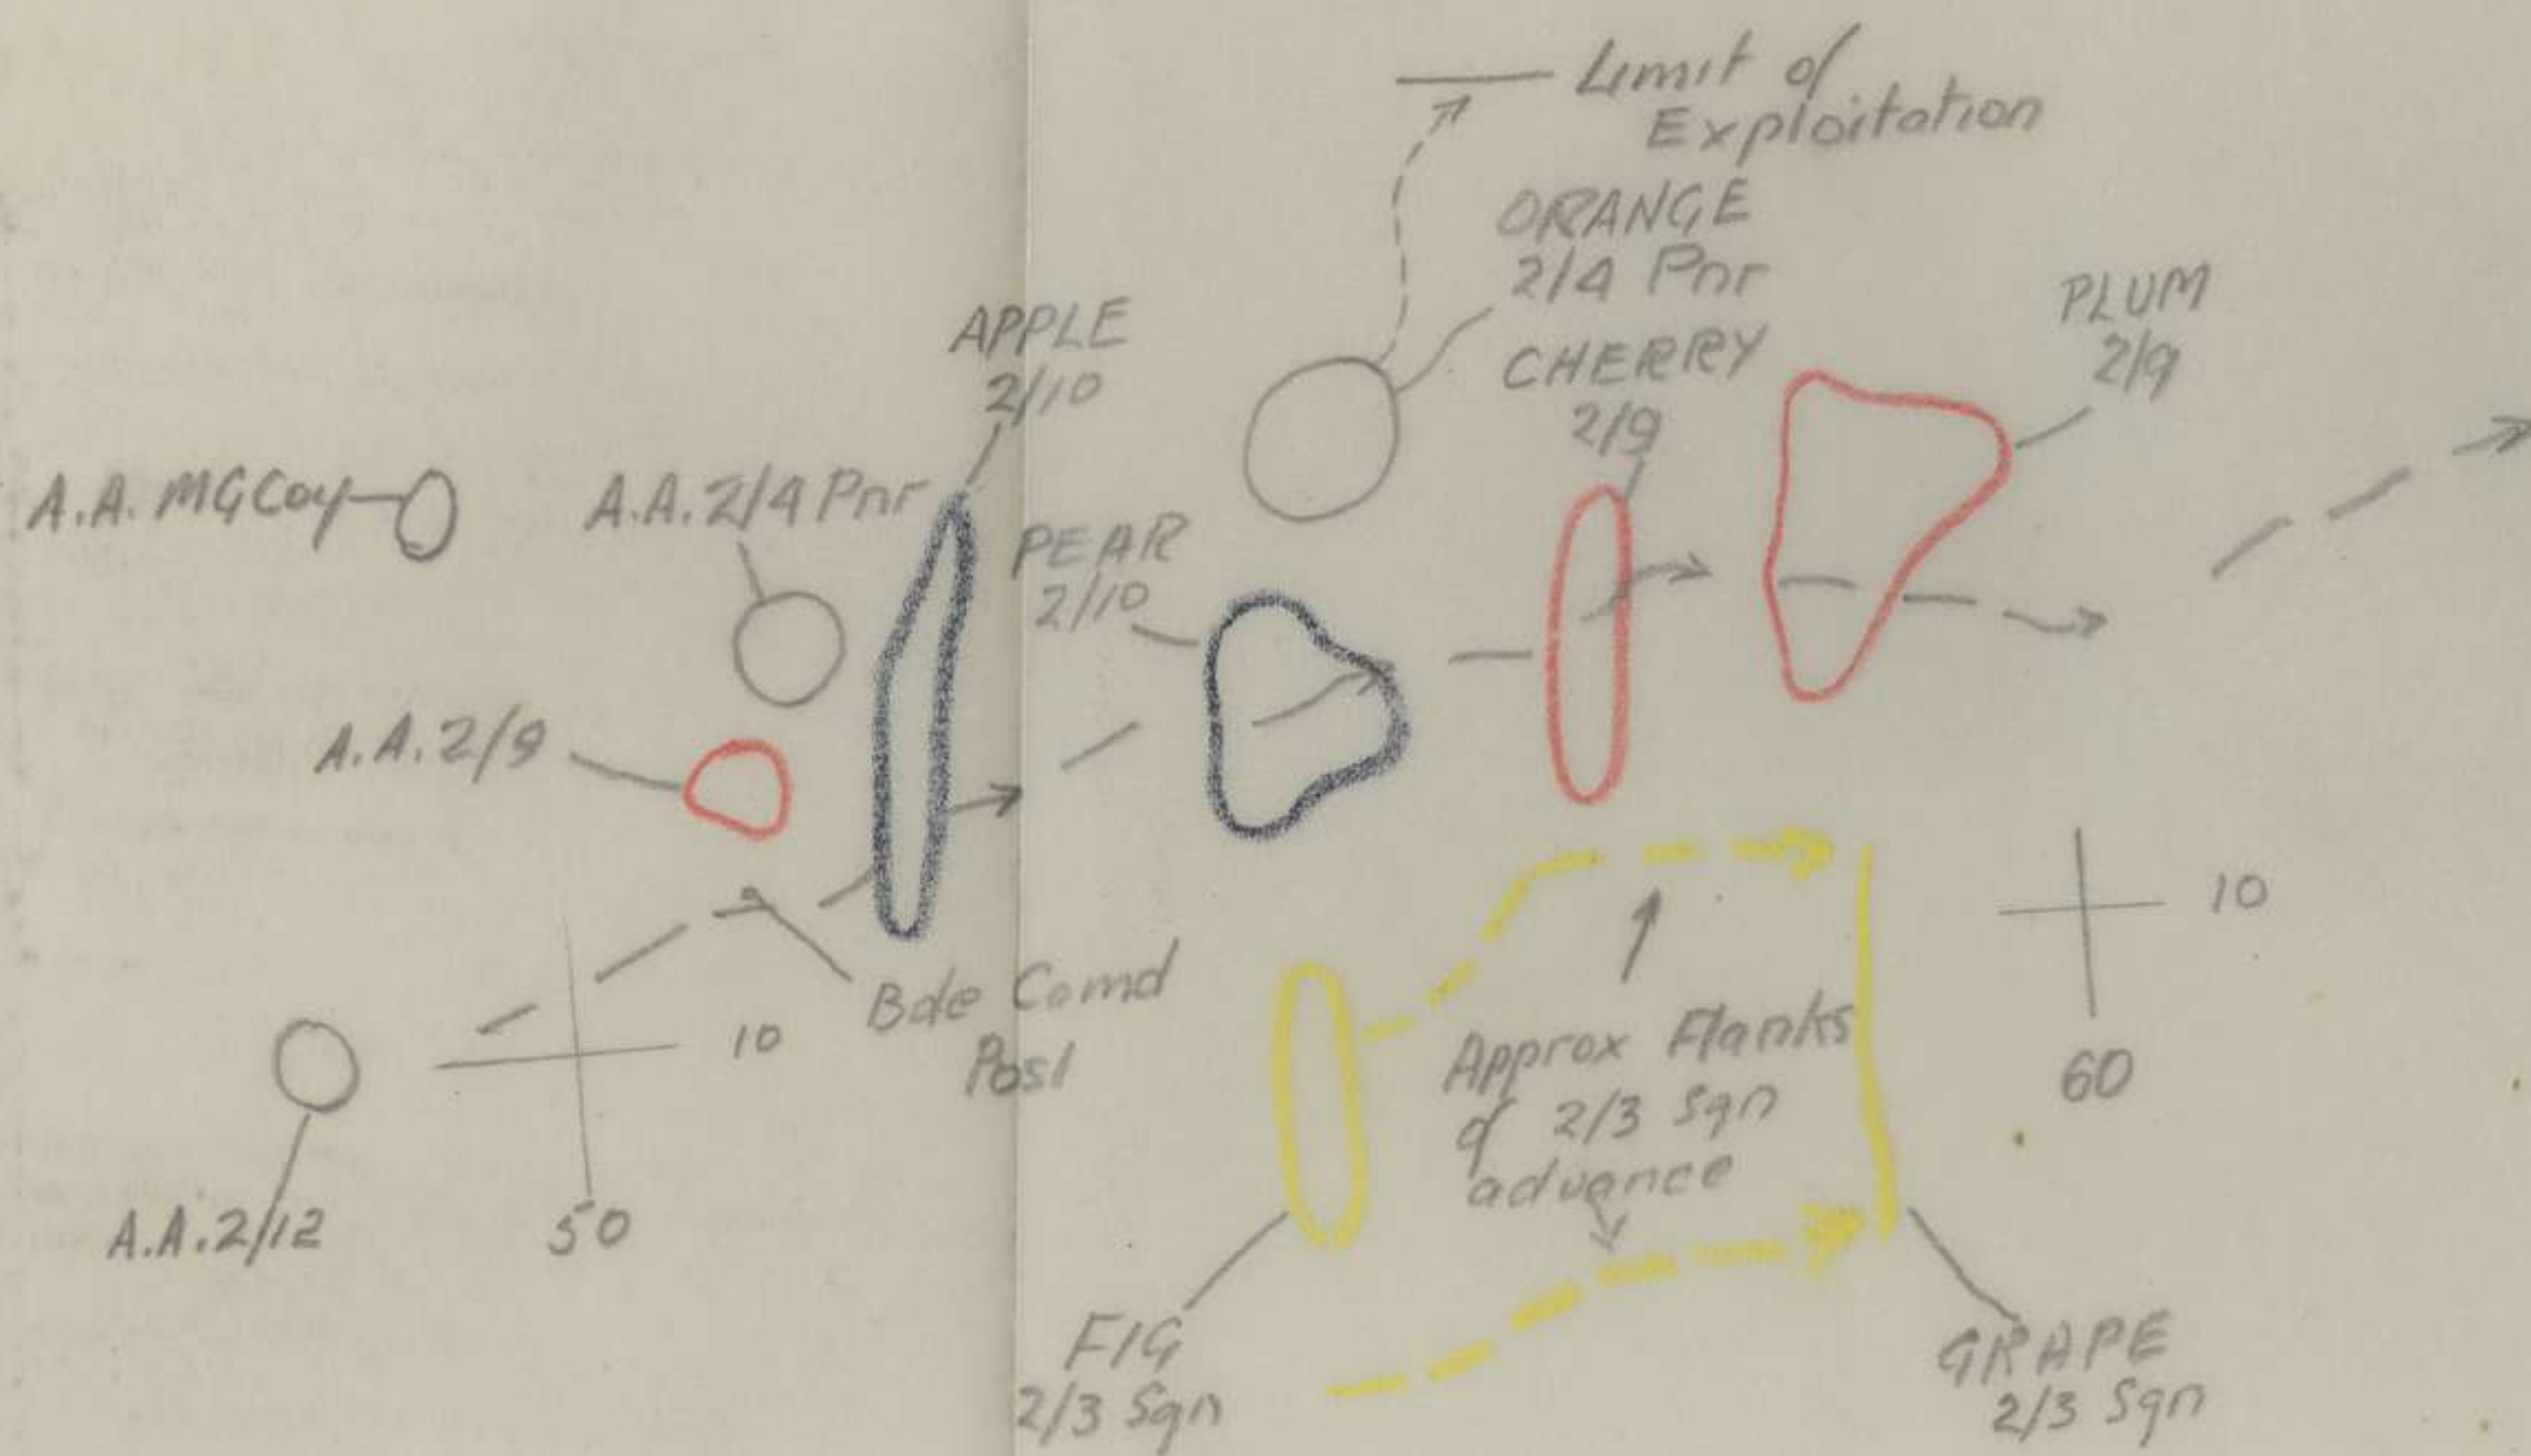 Limit of
Exploitation
ORANGE
2/4 Pnr
APPLE
2/10
CHERRY
2/9
PLUM
2/9
A.A. MG Coy
A.A. 2/4 Pnr
PEAR
2/10
A.A. 2/9
10
Bde Comd
Post
10
50
60
A.A. 2/12
Approx Flanks
of 2/3 Sqn
advance
FIG
2/3 Sqn
GRAPE
2/3 Sqn